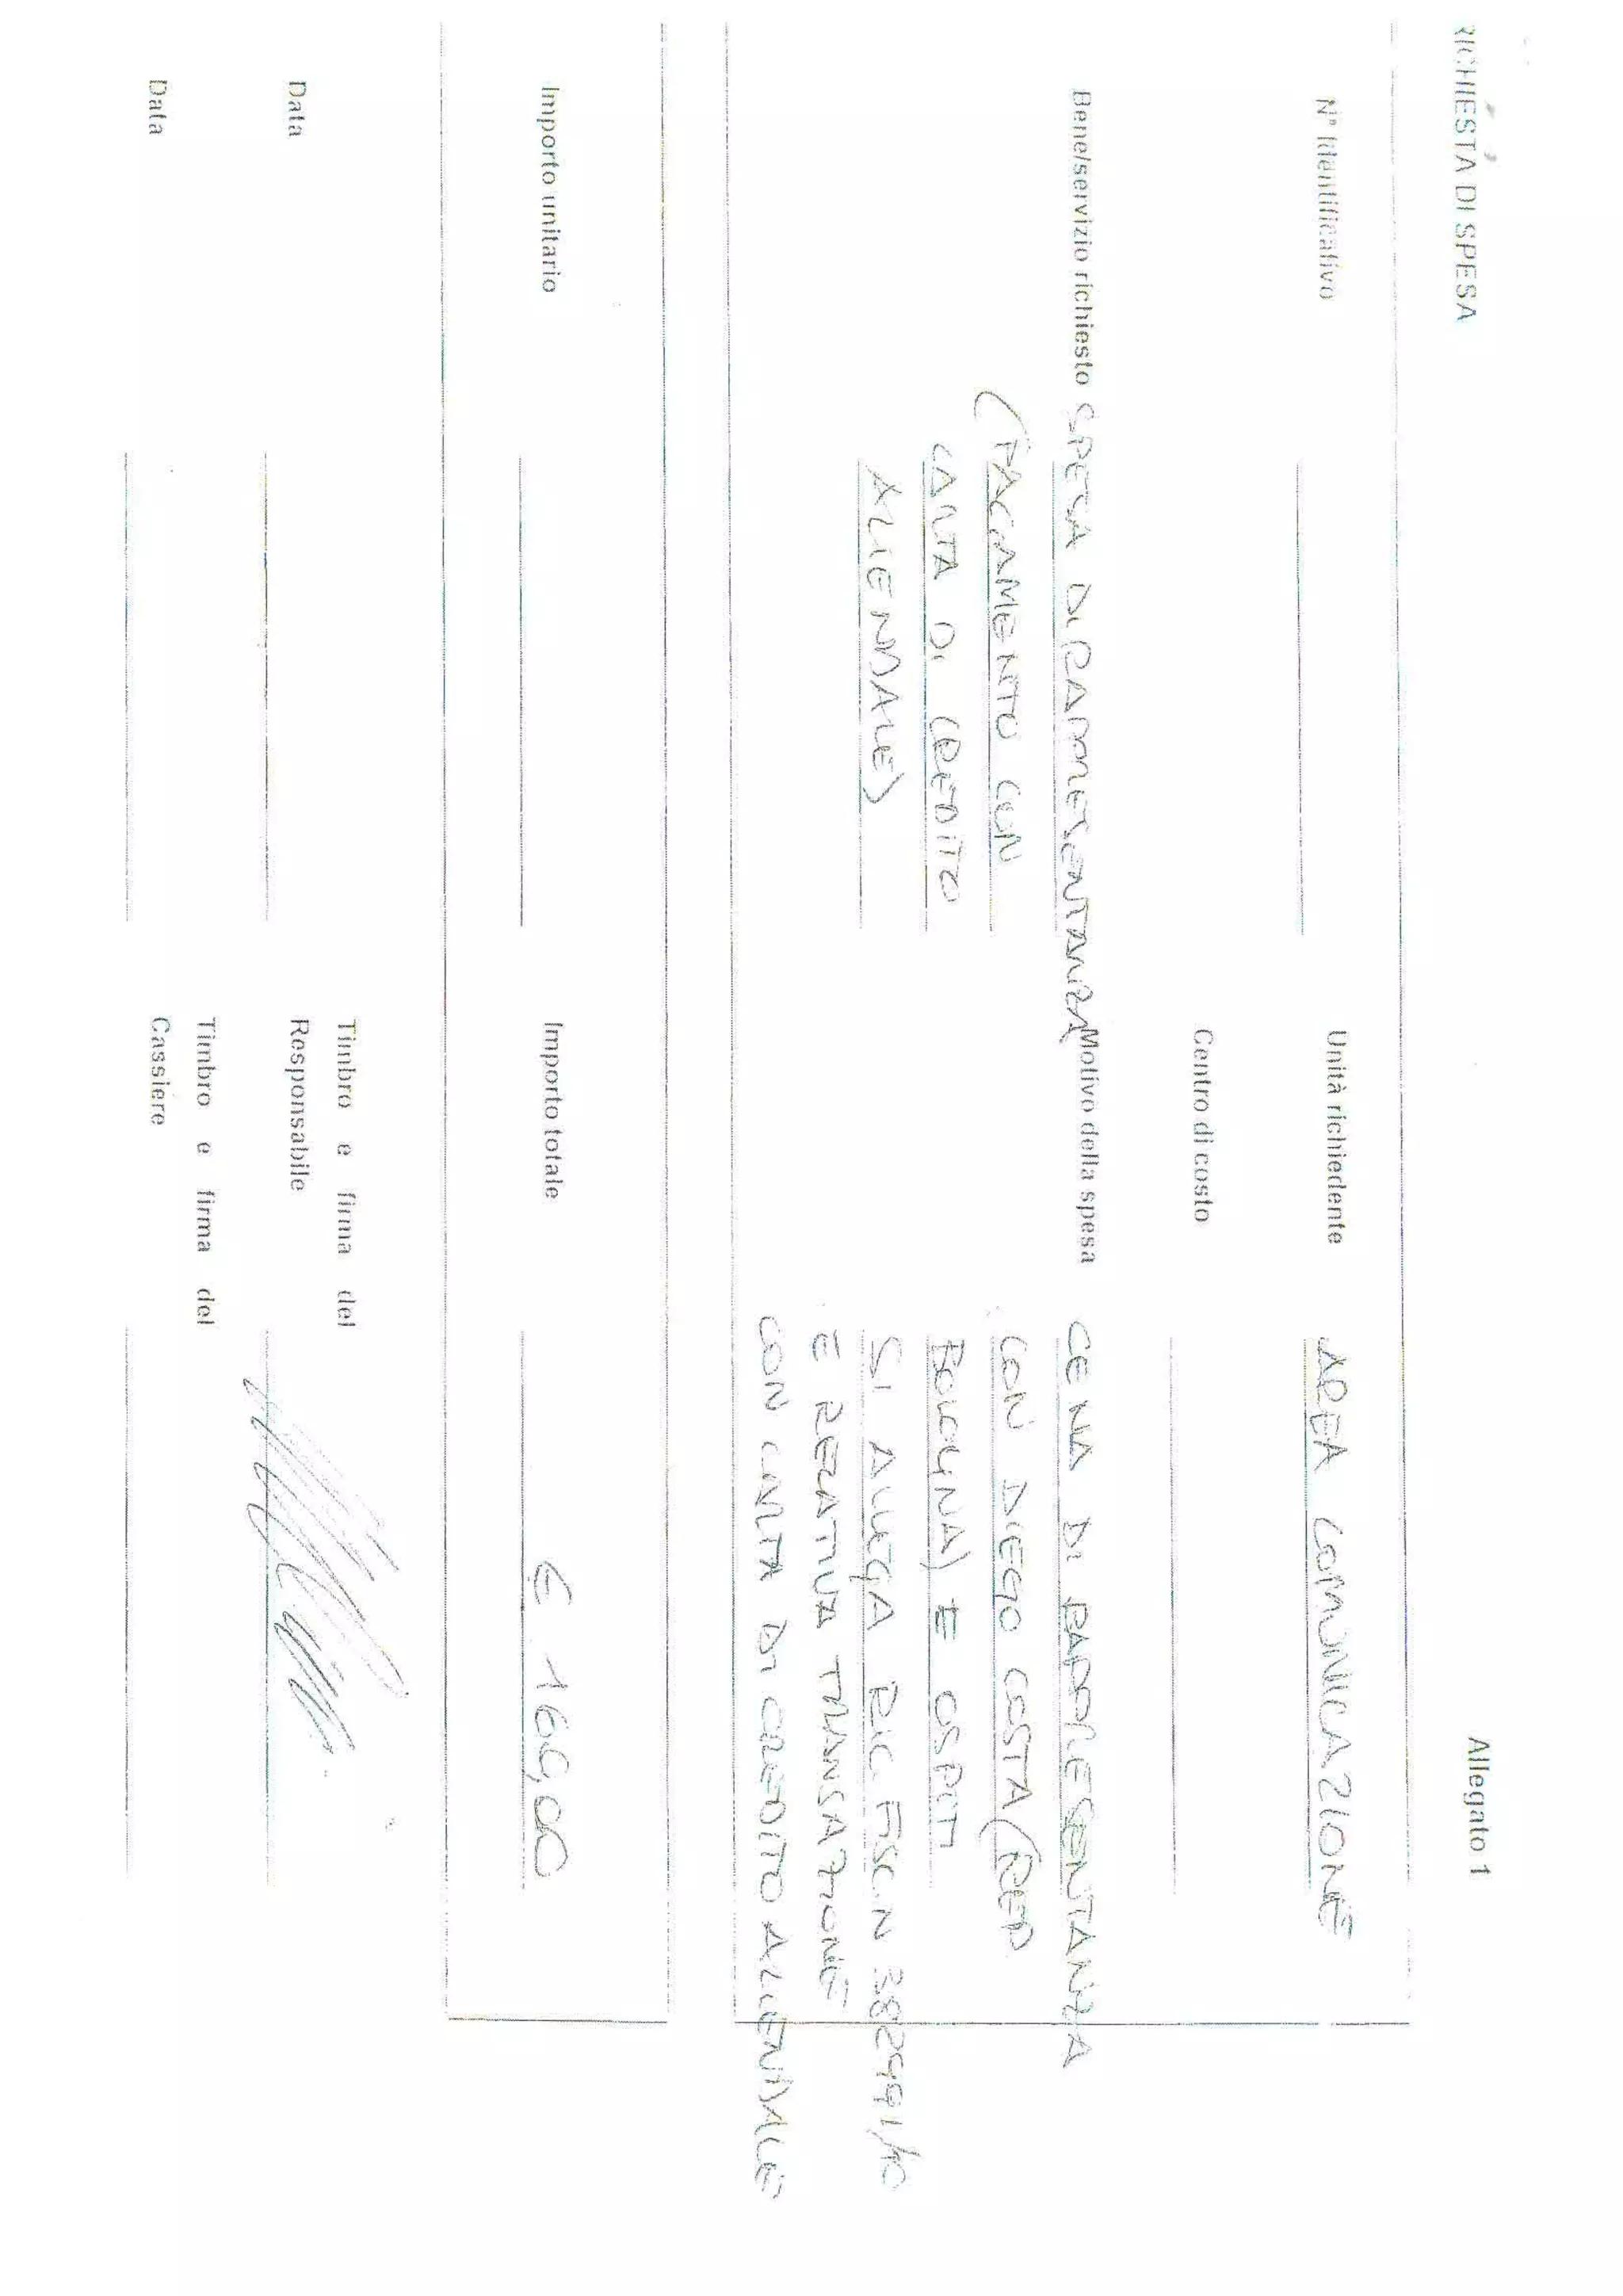 RICHIESTA DI SPESA
Allegato 1
N° Identificativo
Unità richiedente AREA COMUNICAZIONE
Centro di costo
Bene/servizio richiesto SPESA DI RAPPRESENTANZA
(PAGAMENTO CON
CARTA DI CREDITO
AZIENDALE)
Motivo della spesa CENA DI RAPPRESENTANZA
CON DIEGO COSTA (REP
BOLOGNA) E OSPITI
SI ALLEGA RIC. FISC. N 382991/10
E RELATIVA TRANSAZIONE
CON CARTA DI CREDITO AZIENDALE
Importo unitario
Importo totale € 160,00
Data
Timbro e firma del
Responsabile
Data
Timbro e firma del
Cassiere